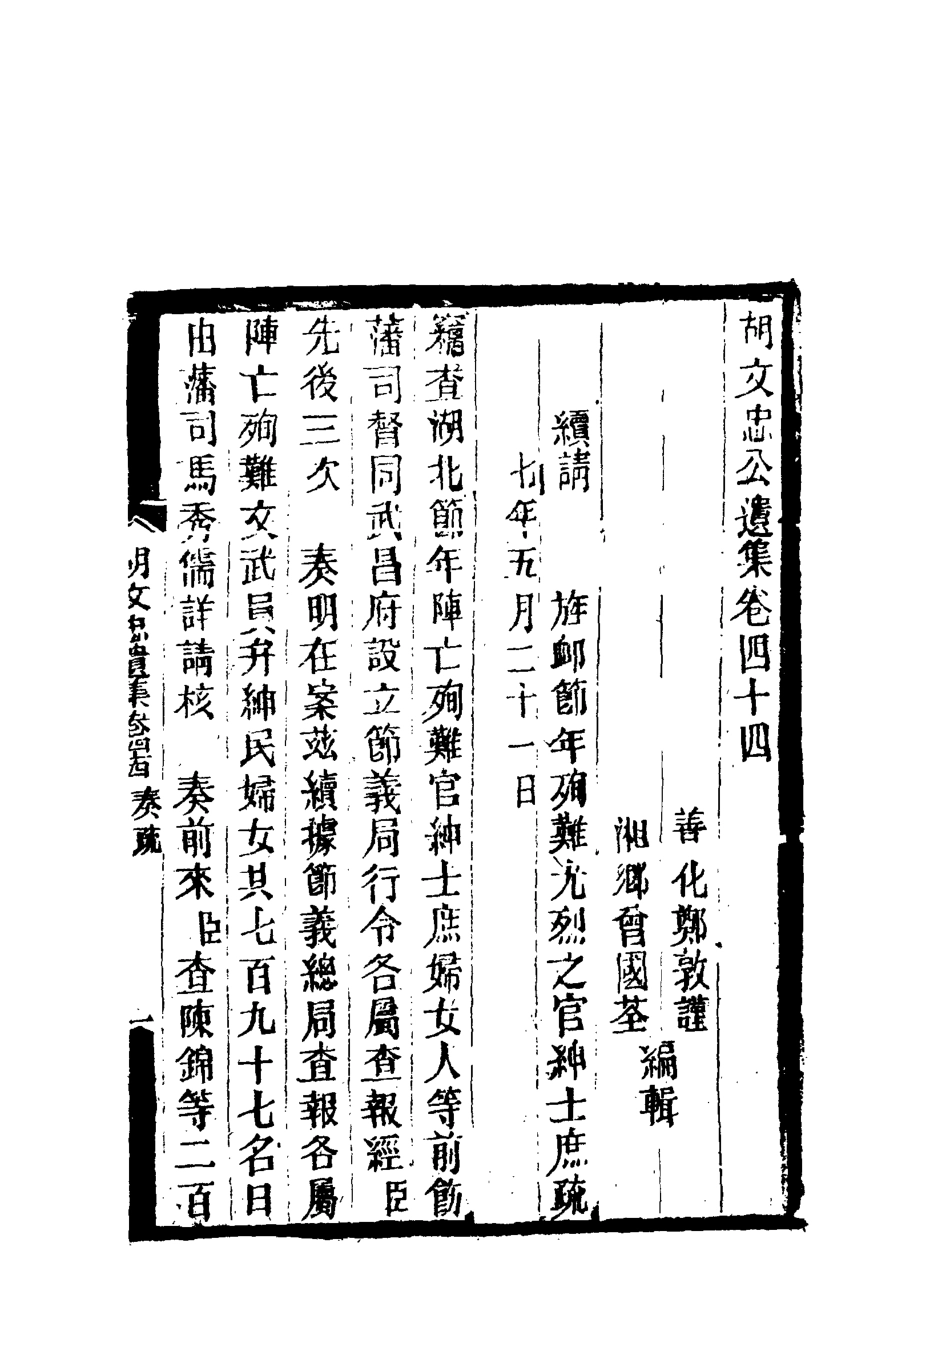 胡文忠公遺集卷四十四
善化鄭敦謹
湘鄉曾國荃
編輯
續請　旌卹節年殉難尤烈之官紳士庶疏
七年五月二十一日
竊查湖北節年陣亡殉難官紳士庶婦女人等前飭
藩司督同武昌府設立節義局行令各屬查報經臣
先後三次　奏明在案茲續據節義總局查報各屬
陣亡殉難文武員弁紳民婦女共七百九十七名口
由藩司馬秀儒詳請核　奏前來臣查陳錦等二百
胡文忠遺集卷四十四　奏疏　一